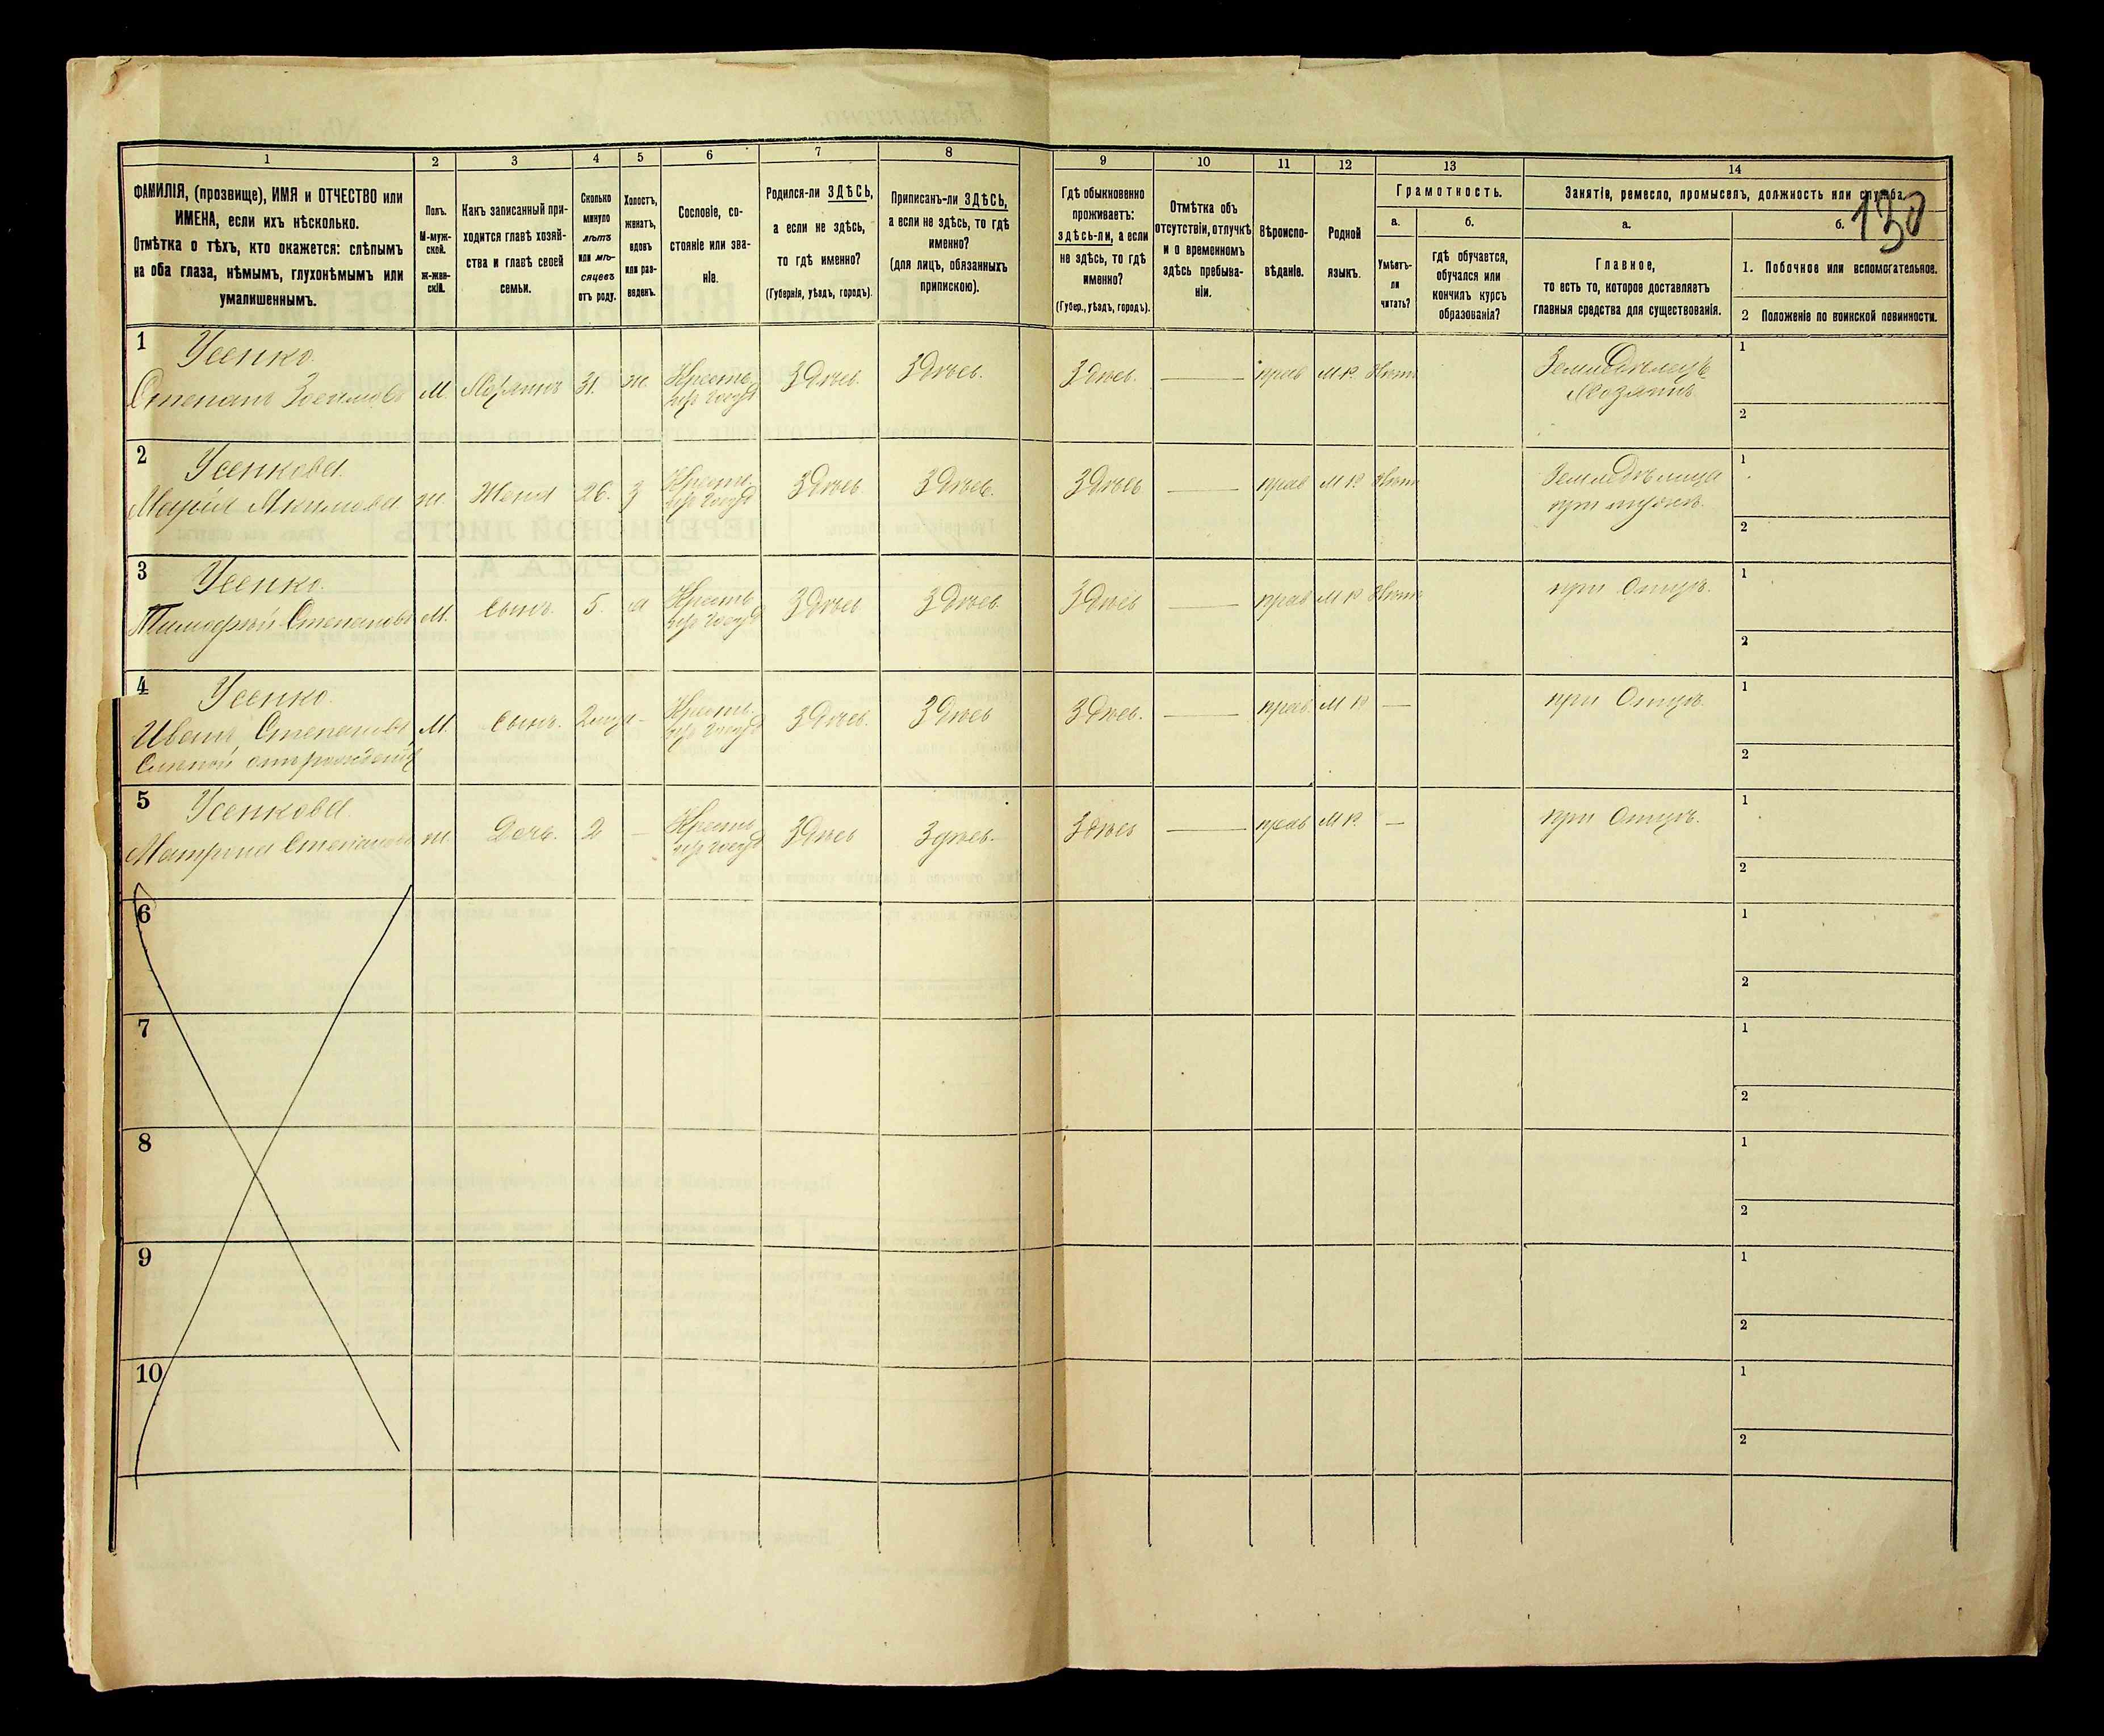 130
1
2
3
4
5
6
7
8
9
10
11
12
13
14
ФАМИЛІЯ, (прозвище), ИМЯ и ОТЧЕСТВО или
ИМЕНА, если ихъ нѣсколько.
Отмѣтка о тѣхъ, кто окажется: слѣпымъ
на оба глаза, нѣмымъ, глухонѣмымъ или
умалишеннымъ.
Полъ.
М-муж-
ской.
ж-жен-
скій.
Какъ записанный при-
ходится главѣ хозяй-
ства и главѣ своей
семьи.
Сколько
минуло
лѣтъ
или мѣ-
сяцевъ
отъ роду.
Холостъ,
женатъ,
вдовъ
или раз-
веденъ.
Сословіе, со-
стояніе или зва-
ніе.
Родился-ли ЗДѢСЬ,
а если не здѣсь,
то гдѣ именно?
(Губернія, уѣздъ, городъ).
Приписанъ-ли ЗДѢСЬ,
а если не здѣсь, то гдѣ
именно?
(для лицъ, обязанныхъ
припискою).
Гдѣ обыкновенно
проживаетъ:
здѣсь-ли, а если
не здѣсь, то гдѣ
именно?
(Губер., уѣздъ, городъ).
Отмѣтка объ
отсутствіи, отлучкѣ
и о временномъ
здѣсь пребыва-
ніи.
Вѣроиспо-
вѣданіе.
Родной
языкъ.
Грамотность.
а.
Умѣетъ-
ли
читать?
б.
Гдѣ обучается,
обучался или
кончилъ курсъ
образованія?
Занятіе, ремесло, промыселъ, должность или служба.
а.
Главное,
то есть то, которое доставляетъ
главныя средства для существованія.
б.
1. Побочное или вспомогательное.
2 Положеніе по воинской повинности.
1
Усенко.
Степанъ М. 31. ж. Кресть. Здѣсь Здѣсь. Здѣсь. прав М.р. Нѣтъ Земледѣлецъ
Хозяинъ.
1
2
2
Усенкова.
Марія Якимова ж. Жена 26. З Кресть. Здѣсь Здѣсь. Здѣсь прав М р. Нѣтъ Земледѣлица
при мужѣ.
1
2
3
Усенко.
Тимофѣй Степановъ М. Сынъ. 5. Кресть. Здѣсь Здѣсь. Здѣсь прав М р. Нѣтъ при Отцѣ.
1
2
4
Усенко.
Иванъ Степановъ М. Сынъ. Кресть. Здѣсь. Здѣсь Здѣсь. прав М р — при Отцѣ.
Слѣпой отъ рожденія
1
2
5
Усенкова.
Матрона Степанова ж. Дочь. 2 — Кресть. Здѣсь Здѣсь. Здѣсь прав М р. — при Отцѣ.
1
2
6
1
2
7
1
2
8
1
2
9
1
2
10
1
2